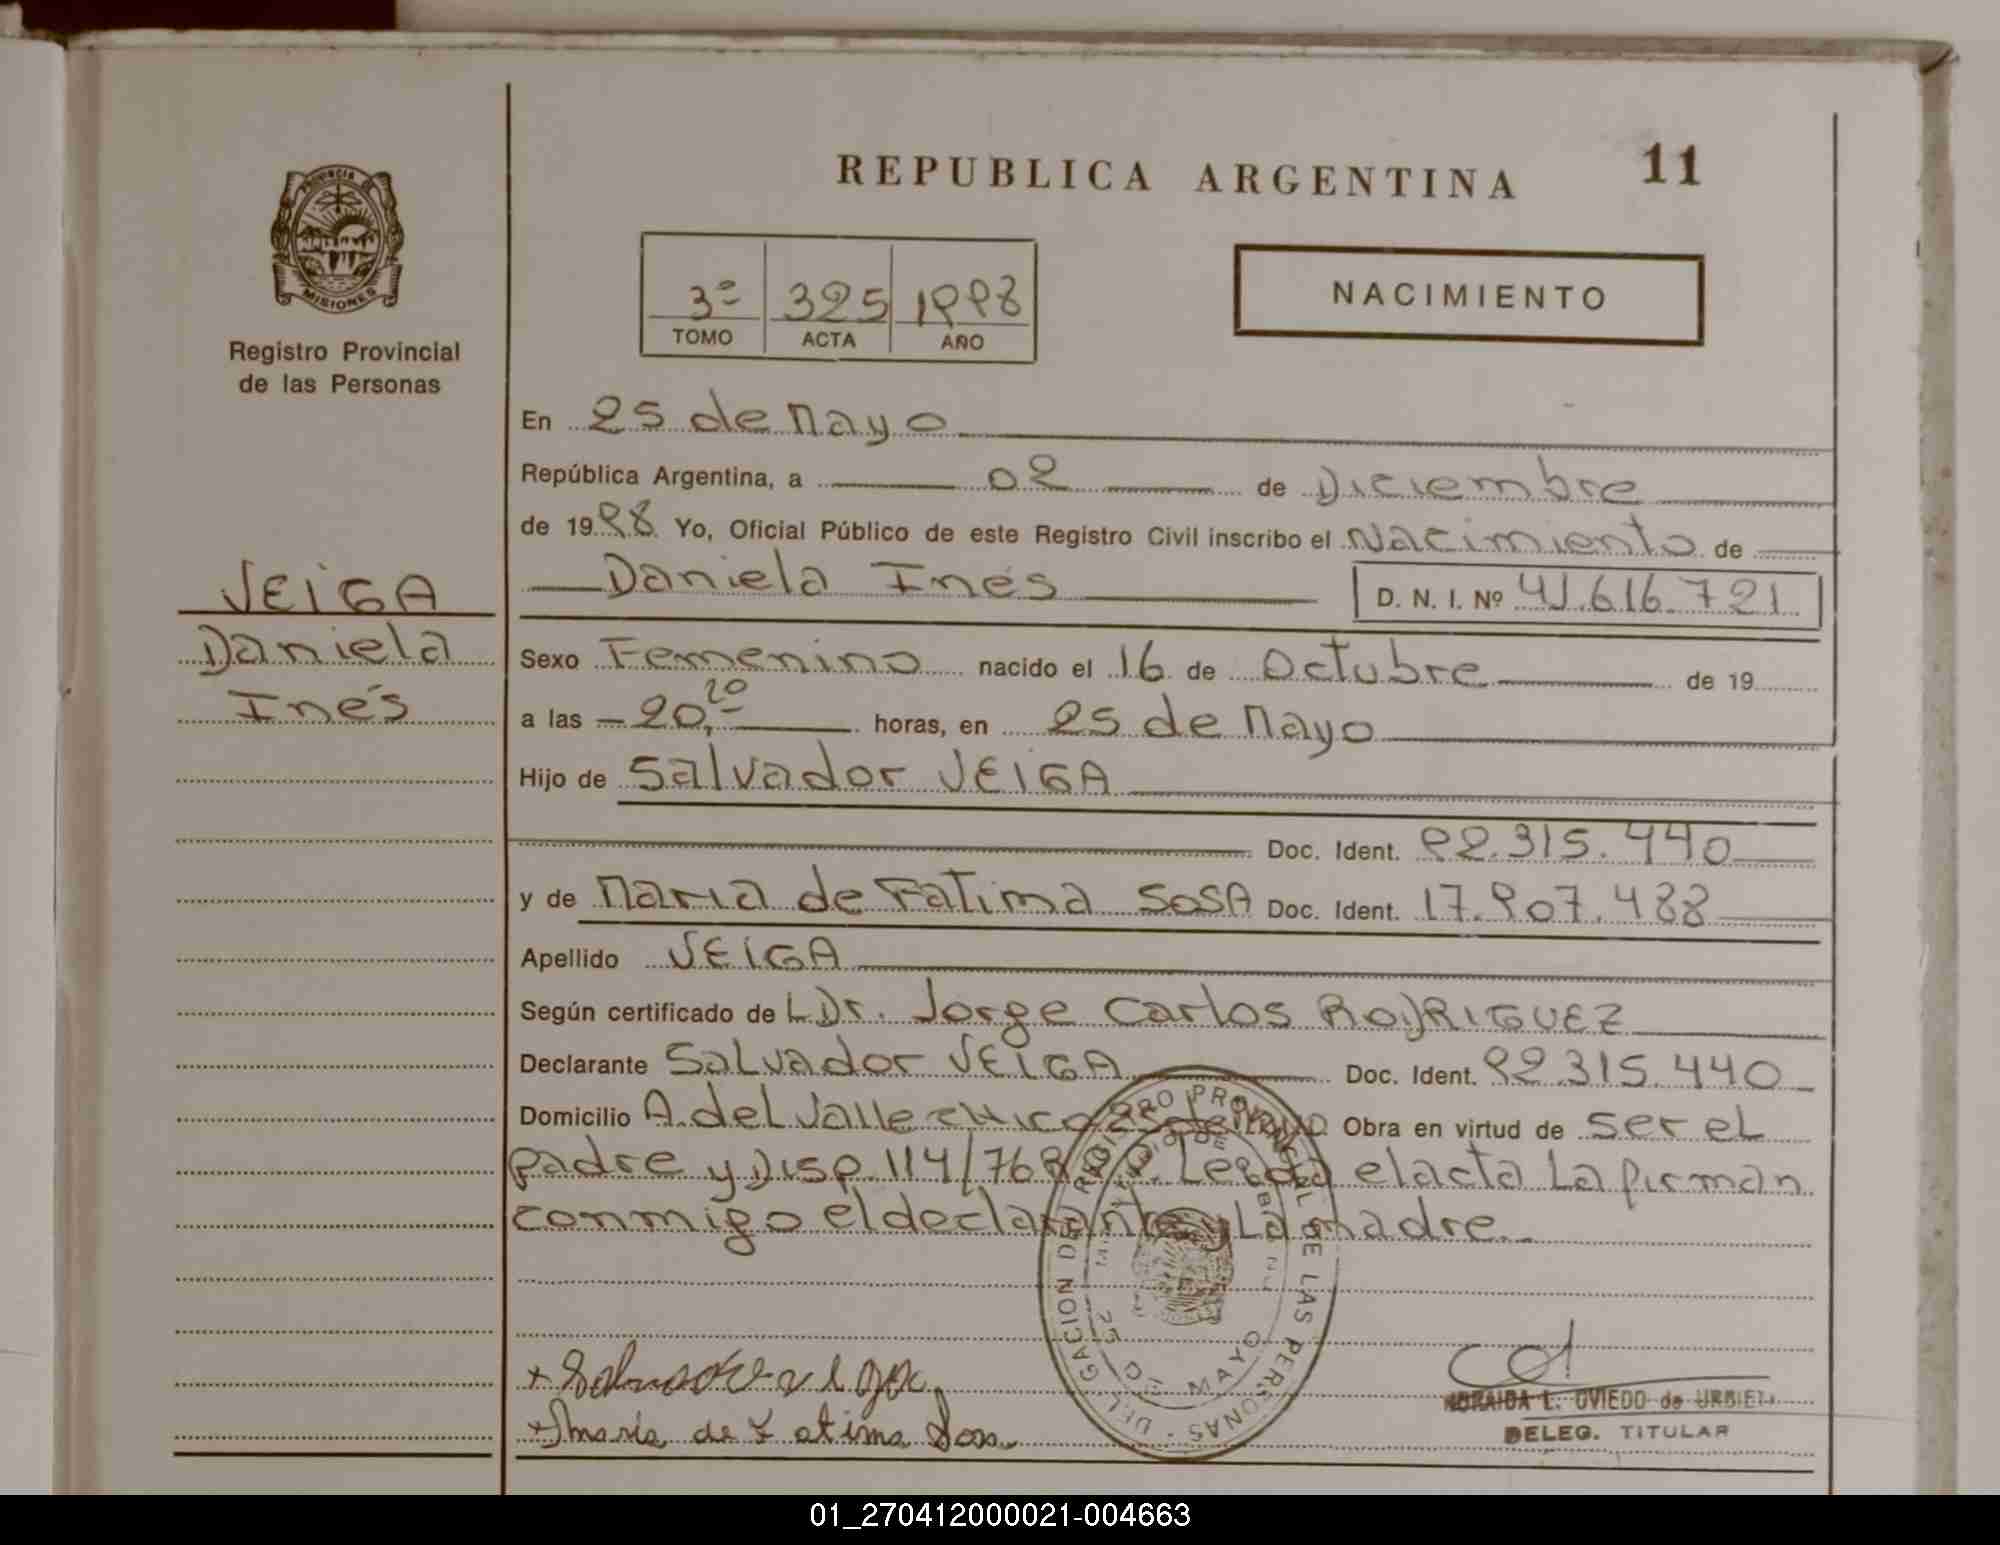 REPUBLICA ARGENTINA 11
PROVINCIA DE
MISIONES
Registro Provincial
de las Personas
3º 325 1998
TOMO ACTA AÑO
NACIMIENTO
En 25 de Mayo
República Argentina, a 02 de Diciembre
de 1998 Yo, Oficial Público de este Registro Civil inscribo el Nacimiento de
VEIGA
Daniela
Inés
Daniela Inés D. N. I. Nº 41.616.721
Sexo Femenino nacido el 16 de Octubre de 19
a las 20,20 horas, en 25 de Mayo
Hijo de Salvador VEIGA
Doc. Ident. 22.315.440
y de Maria de Fatima SOSA Doc. Ident. 17.907.488
Apellido VEIGA
Según certificado de L Dr. Jorge Carlos RODRIGUEZ
Declarante Salvador VEIGA Doc. Ident. 22.315.440
Domicilio A. del Valle chico 25 de Mayo Obra en virtud de ser el
padre y Disp. 114/76 Leida el acta La firman
conmigo el declarante y La madre.
DELEGACION DEL REGISTRO PROVINCIAL DE LAS PERSONAS
25 DE MAYO
+ Salvador veiga
+ Maria de Fatima Sosa
L. OVIEDO de
DELEG. TITULAR
01_270412000021-004663